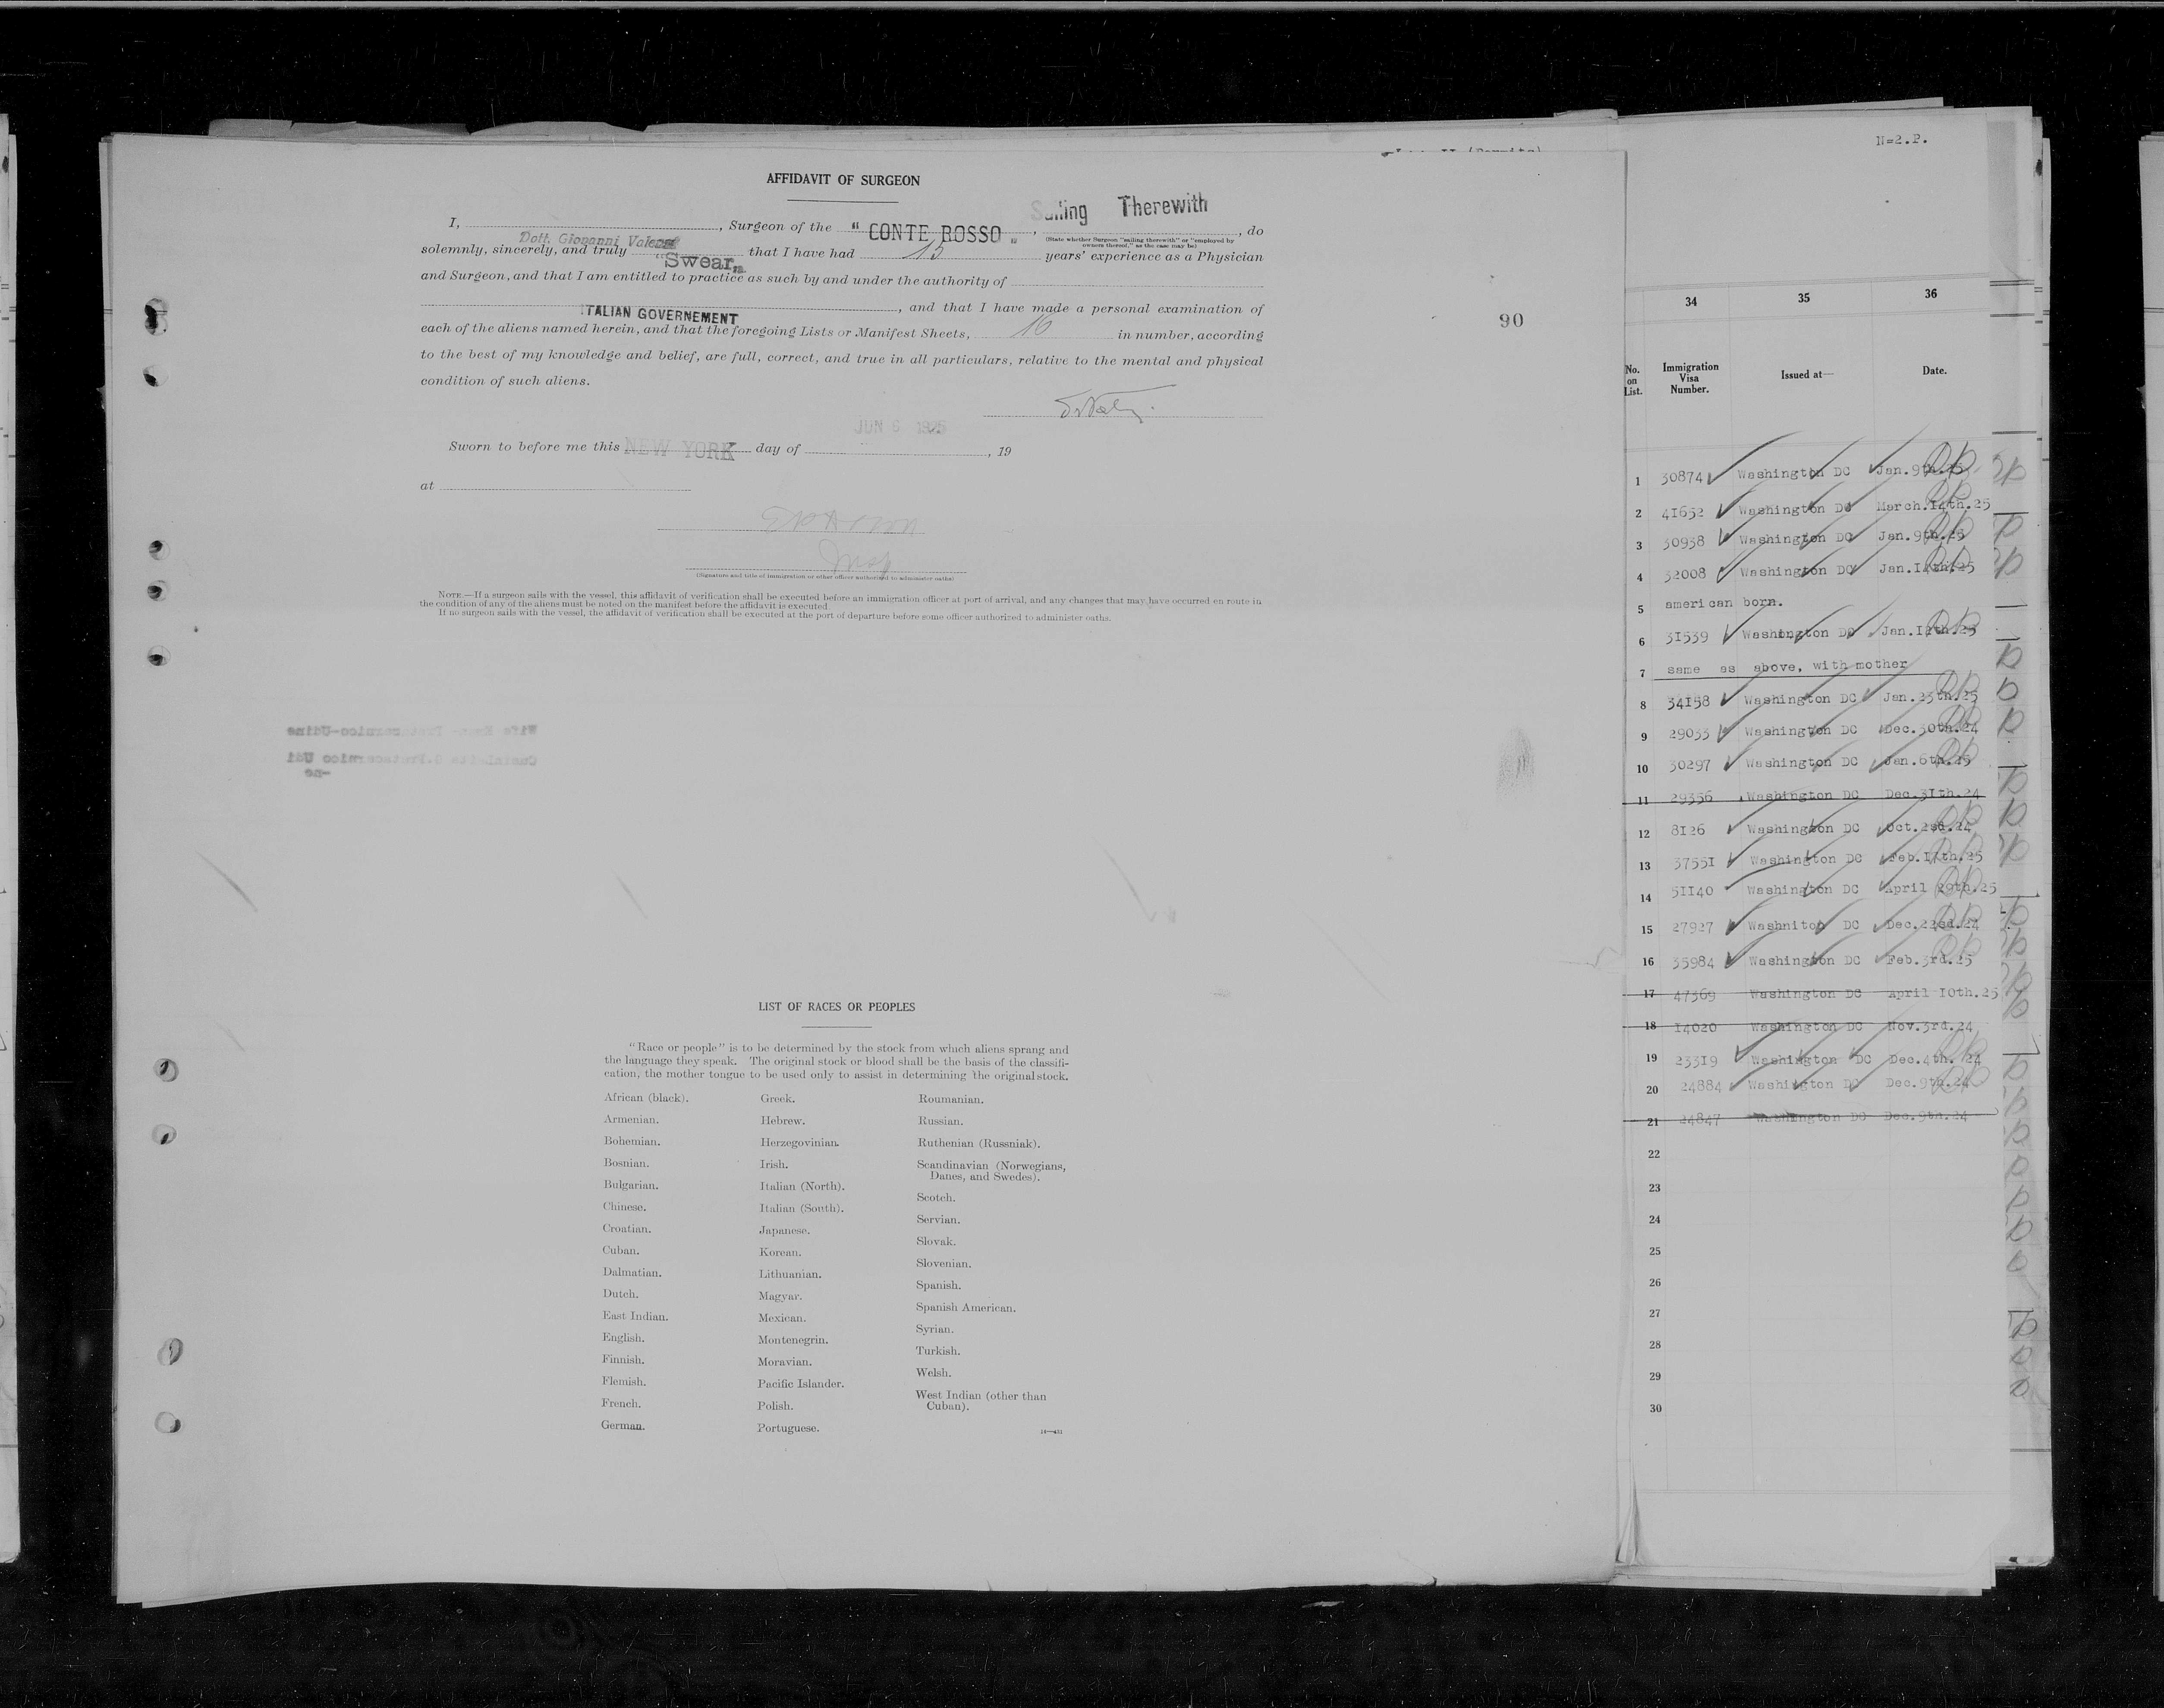 N=2.P.
AFFIDAVIT OF SURGEON
Sailing Therewith
I, , Surgeon of the " CONTE ROSSO " , , do
Dott. Giovanni
(State whether Surgeon "sailing therewith" or "employed by
owners thereof," as the case may be)
solemnly, sincerely, and truly "Swear" that I have had 15 years' experience as a Physician
and Surgeon, and that I am entitled to practice as such by and under the authority of
ITALIAN GOVERNEMENT , and that I have made a personal examination of
each of the aliens named herein, and that the foregoing Lists or Manifest Sheets, 16 in number, according
to the best of my knowledge and belief, are full, correct, and true in all particulars, relative to the mental and physical
condition of such aliens.
90
JUN 6 1925
Sworn to before me this NEW YORK day of , 19
at
Insp
(Signature and title of immigration or other officer authorized to administer oaths)
NOTE.—If a surgeon sails with the vessel, this affidavit of verification shall be executed before an immigration officer at port of arrival, and any changes that may have occurred en route in
the condition of any of the aliens must be noted on the manifest before the affidavit is executed
If no surgeon sails with the vessel, the affidavit of verification shall be executed at the port of departure before some officer authorized to administer oaths.
LIST OF RACES OR PEOPLES
"Race or people" is to be determined by the stock from which aliens sprang and
the language they speak. The original stock or blood shall be the basis of the classifi-
cation, the mother tongue to be used only to assist in determining the original stock.
African (black).
Armenian.
Bohemian.
Bosnian.
Bulgarian.
Chinese.
Croatian.
Cuban.
Dalmatian.
Dutch.
East Indian.
English.
Finnish.
Flemish.
French.
German.
Greek.
Hebrew.
Herzegovinian.
Irish.
Italian (North).
Italian (South).
Japanese.
Korean.
Lithuanian.
Magyar.
Mexican.
Montenegrin.
Moravian.
Pacific Islander.
Polish.
Portuguese.
Roumanian.
Russian.
Ruthenian (Russniak).
Scandinavian (Norwegians,
Danes, and Swedes).
Scotch.
Servian.
Slovak.
Slovenian.
Spanish.
Spanish American.
Syrian.
Turkish.
Welsh.
West Indian (other than
Cuban).
14—431
34 35 36
No. on List. Immigration Visa Number. Issued at— Date.
1 30874 Washington DC Jan.9th.25
2 41652 Washington DC March.14th.25
3 30938 Washington DC Jan.9th.25
4 32008 Washington DC Jan.14th.25
5 american born.
6 31539 Washington DC Jan.12th.25
7 same as above, with mother
8 34158 Washington DC Jan.23th.25
9 29033 Washington DC Dec.30th.24
10 30297 Washington DC Jan.6th.25
11 29356 Washington DC Dec.31th.24
12 8126 Washington DC Oct.2sd.24
13 37551 Washington DC Feb.17th.25
14 51140 Washington DC April 29th.25
15 27927 Washniton DC Dec.22sd.24
16 35984 Washington DC Feb.3rd.25
17 47369 Washington DC April 10th.25
18 14020 Washington DC Nov.3rd.24
19 23319 Washington DC Dec.4th.24
20 24884 Washington DC Dec.9th.24
21 24847 Washington DC Dec.9th.24
22
23
24
25
26
27
28
29
30